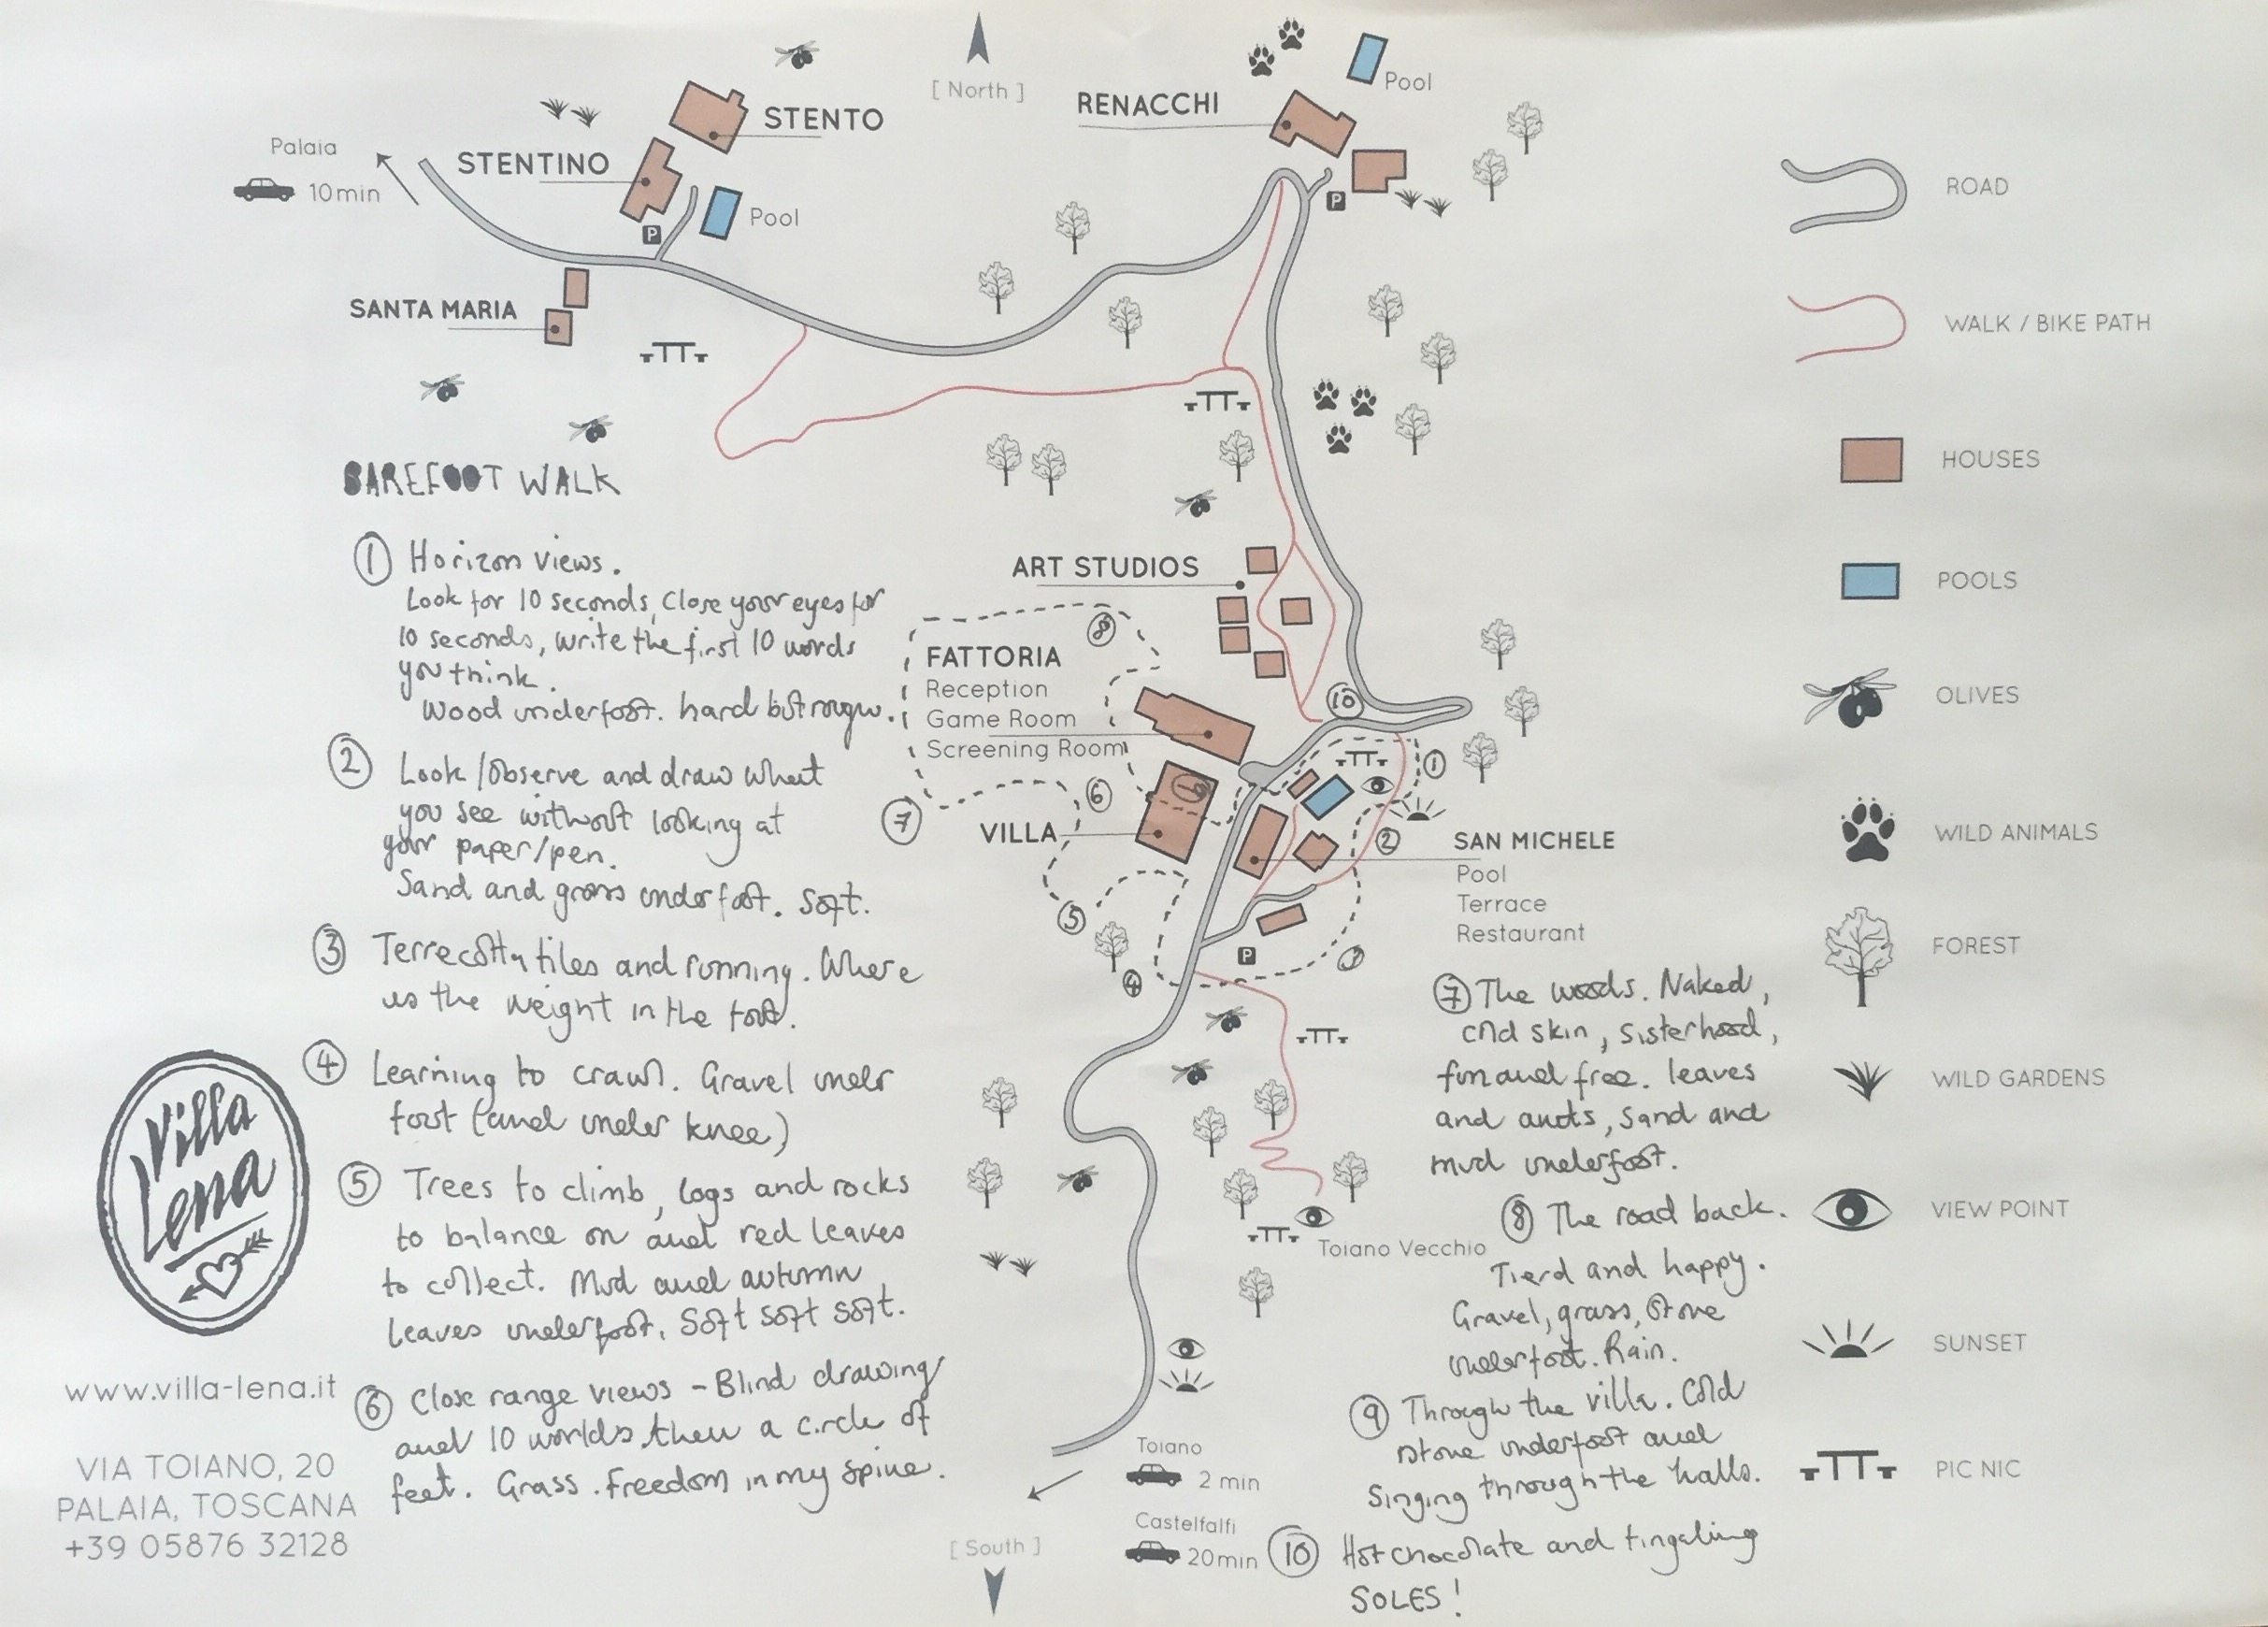 [North]
Pool
RENACCHI
STENTO
STENTINO
Palaia
10min
Pool
P
P
SANTA MARIA
ROAD
WALK / BIKE PATH
HOUSES
POOLS
OLIVES
WILD ANIMALS
FOREST
WILD GARDENS
VIEW POINT
SUNSET
PIC NIC
BAREFOOT WALK
① Horizon views.
Look for 10 seconds, Close your eyes for
10 seconds, write the first 10 words
you think.
Wood underfoot. hard but rough.
② Look/Observe and draw what
you see without looking at
your paper/pen.
Sand and grass underfoot. Soft.
③ Terrecotta tiles and running. Where
is the weight in the foot.
④ Learning to crawl. Gravel under
foot (and under knee)
⑤ Trees to climb, logs and rocks
to balance on and red leaves
to collect. Mud and autumn
leaves underfoot. Soft soft soft.
⑥ Close range views - Blind drawing
and 10 worlds, then a circle of
feet. Grass. Freedom in my spine.
ART STUDIOS
⑧
FATTORIA
Reception
Game Room
Screening Room
⑩
①
⑥
⑨
⑦
VILLA
②
SAN MICHELE
Pool
Terrace
Restaurant
⑤
P
③
④
⑦ The woods. Naked,
cold skin, sisterhood,
fun and free. leaves
and ants, sand and
mud underfoot.
⑧ The road back.
Tierd and happy.
Gravel, grass, Stone
underfoot. Rain.
⑨ Through the villa. Cold
stone underfoot and
singing through the halls.
⑩ Hot chocolate and tingeling
SOLES!
Toiano Vecchio
Toiano
2 min
Castelfalfi
20min
[South]
Villa
Lena
www.villa-lena.it
VIA TOIANO, 20
PALAIA, TOSCANA
+39 05876 32128